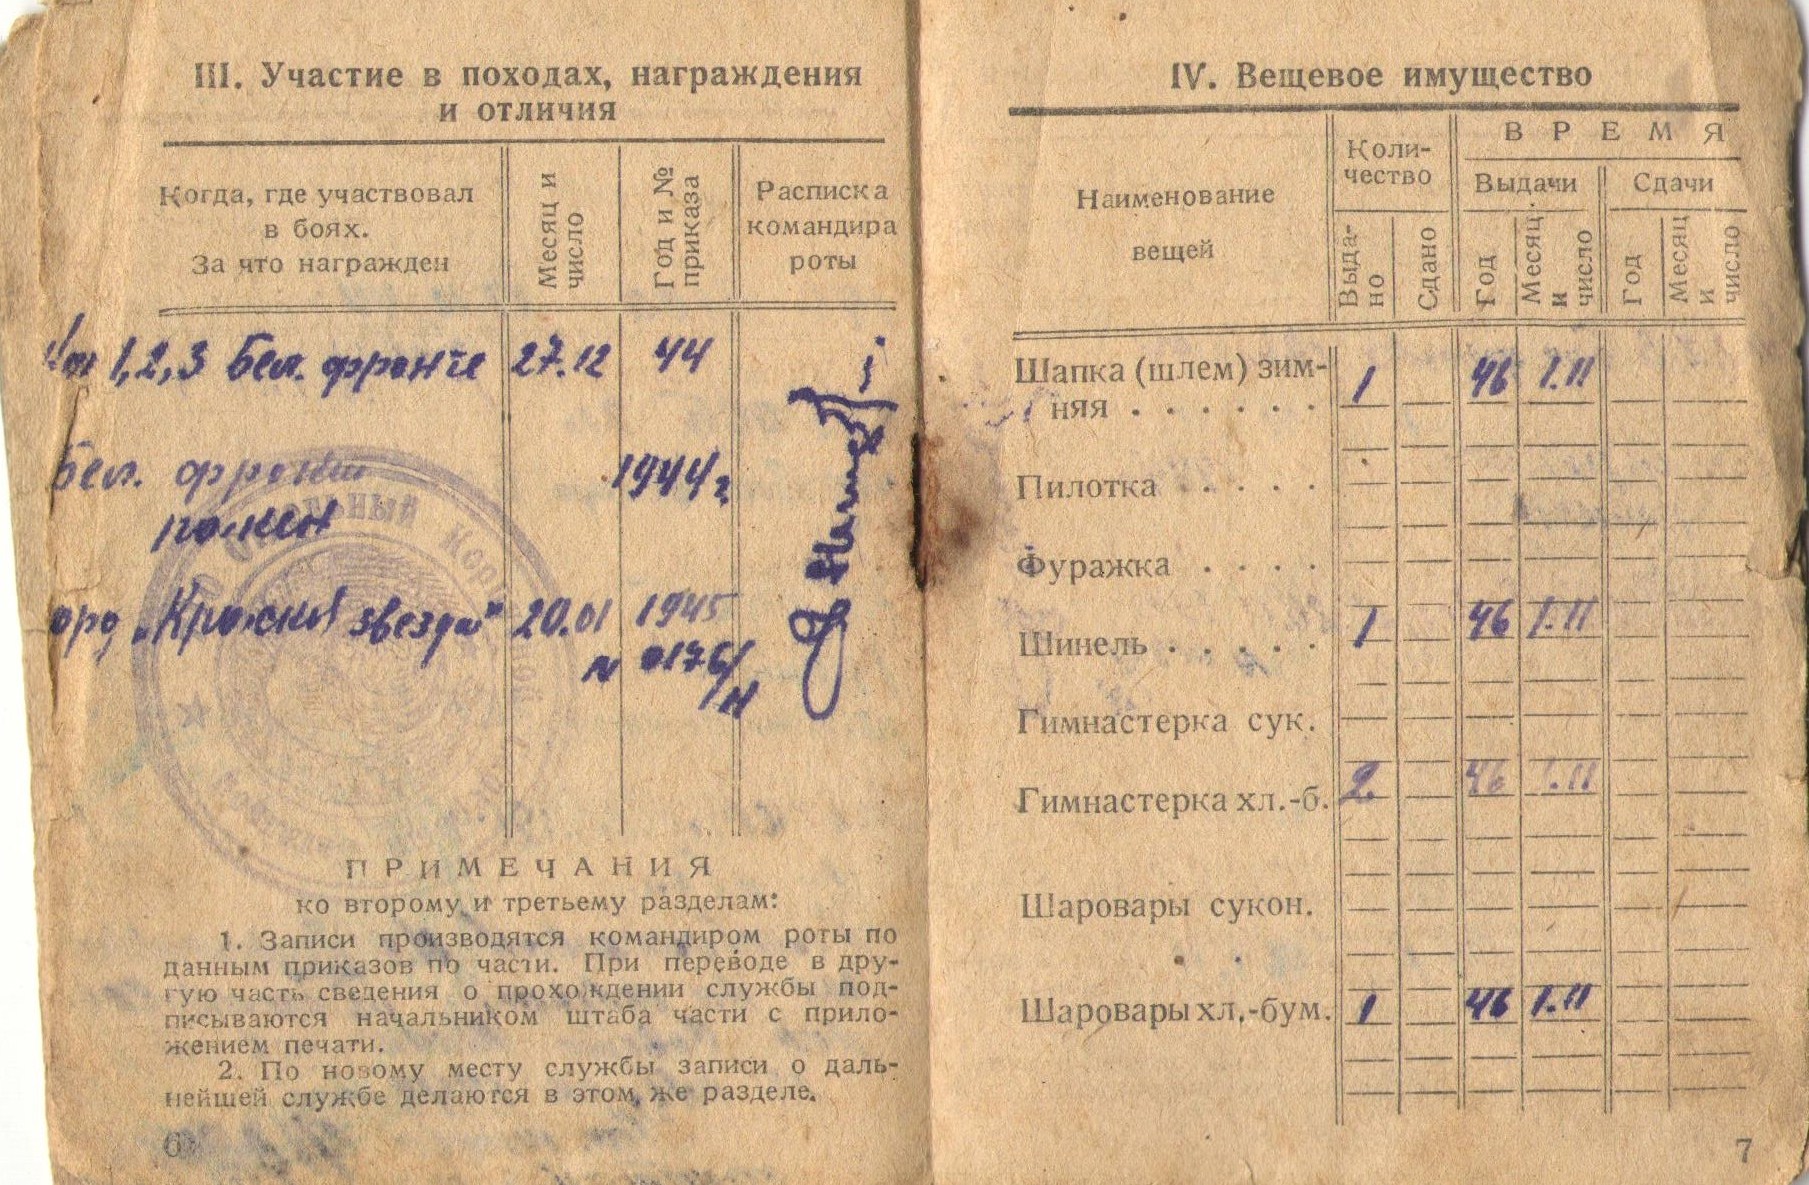 III. Участие в походах, награждения
и отличия
Когда, где участвовал
в боях.
За что награжден
Месяц и
число
Год и №
приказа
Расписка
командира
роты
1,2,3 Бел. фронте 27.12 44
Бел. фронт 1944 г.
ранен
орд „Красной звезды" 20.01 1945
N 0176/
н
ПРИМЕЧАНИЯ
ко второму и третьему разделам:
1. Записи производятся командиром роты по
данным приказов по части. При переводе в дру-
гую часть сведения о прохождении службы под-
писываются начальником штаба части с прило-
жением печати.
2. По новому месту службы записи о даль-
нейшей службе делаются в этом же разделе.
6
IV. Вещевое имущество
Наименование
вещей
Коли-
чество
ВРЕМЯ
Выдачи
Сдачи
Выда-
но
Сдано
Год
Месяц
и
число
Год
Месяц
и
число
Шапка (шлем) зим-
няя . . . . . . 1 46 1.11
Пилотка . . . . .
Фуражка . . . .
Шинель . . . . . 1 46 1.11
Гимнастерка сук.
Гимнастерка хл.-б. 2. 46 1.11
Шаровары сукон.
Шаровары хл.-бум. 1 46 1.11
7